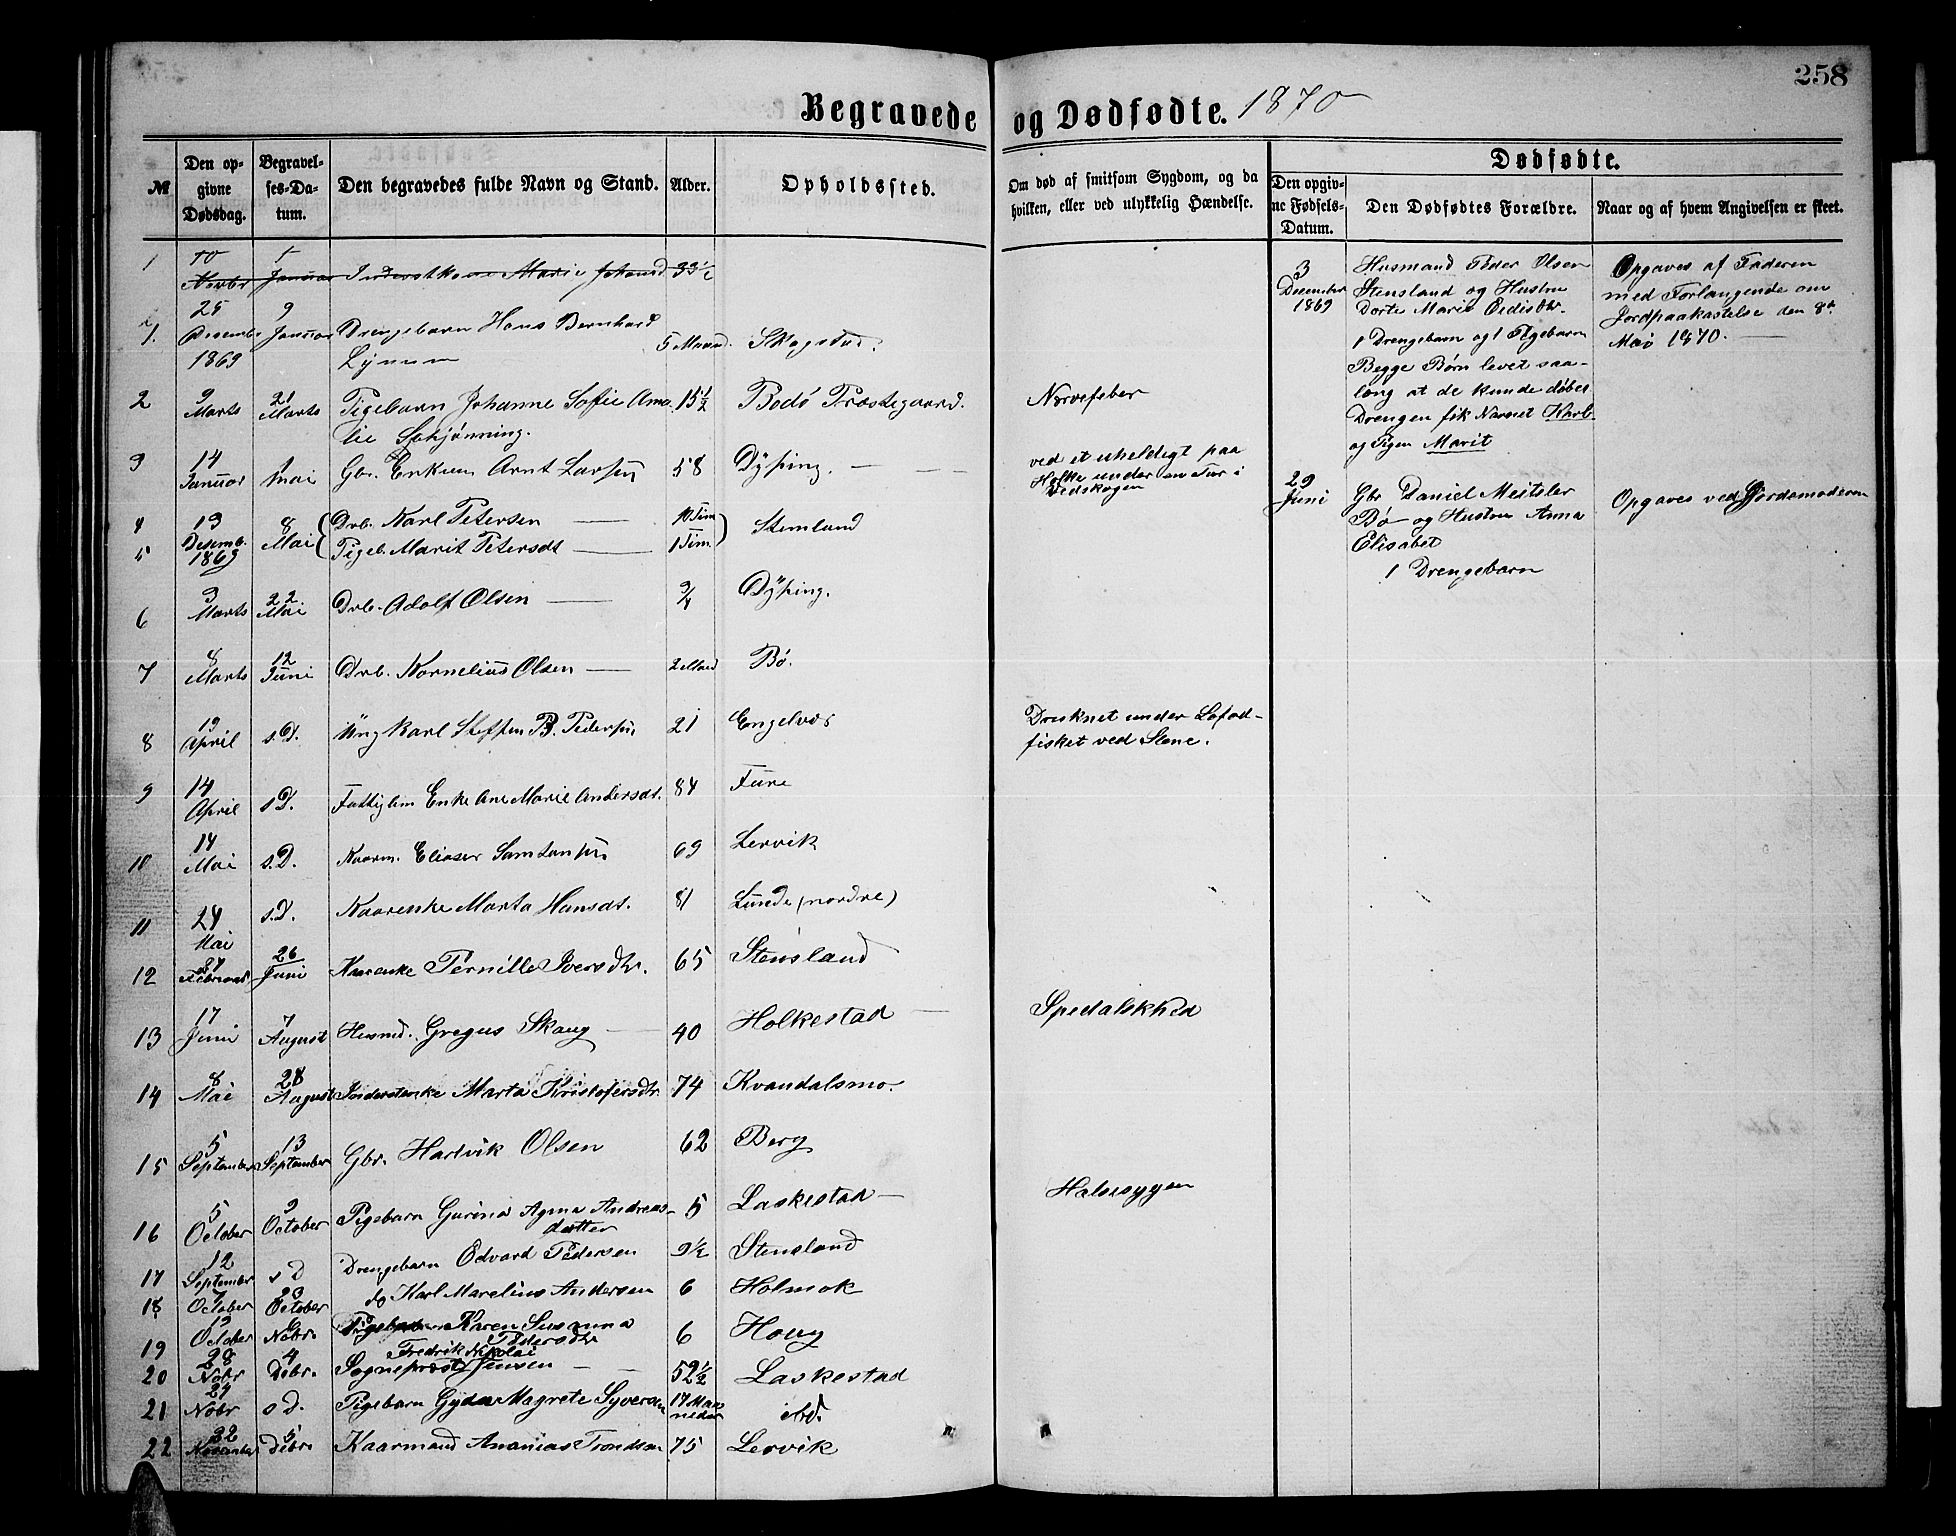 258
Begravede og Dødfødte. 1870
№
Den opgivne Dødsdag.
Begravelses-Datum.
Den begravedes fulde Navn og Stand.
Alder.
Opholdssted.
Om død af smitsom Sygdom, og da hvilken, eller ved ulykkelig Hændelse.
Dødfødte.
Den opgivne Fødsels-Datum.
Den Dødfødtes Forældre.
Naar og af hvem Angivelsen er skeet.
1 10 Novbr 1 Januar Marie Johansd. 33½
1. 25 Desembr 1869 9 Januar Drengebarn Hans Bernhard 5 Maand. Skagstad.
2 9 Marts 21 Marts Pigebarn Johanne Sofie Ama- 15½ Bodø Præstegaard. Nervefeber
lie Schjønning.
3 14 Januar 1 Mai Gbr. Enkem Arnt Larssen 58 Dyping. ved et uheldigt paa
Holke under en Tur i
Vedskogen
4 13 Desemb. 1869 8 Mai Drb. Karl Petersen 10 Tim Stensland
5 Pigeb. Marit Petersdt 1 Tim.
6 3 Marts 22 Mai Drb. Adolf Olsen ¾ Dyping.
7 8 Marts 12 Juni Drb. Kornelius Olsen 2 Maad Bø.
8 19 April s.D. Ungkarl Steffen B. Pedersen 21 Engelvær Druknet under Lofod-
fisket ved Stene.
9 14 April s.D. Fattiglem Enke Ane Marie Andersdt. 84 Fure
10 14 Mai s.D. Kaarm. Elieser Samsonsen 69 Lervik
11 24 Mai s.D. Kaarenke Marta Hansdt. 81 Lunde (nordre)
12 27 Februar 26 Juni Kaarenke Pernille Iversdtr. 65 Stensland
13 17 Juni 7 August Husmd. Gregus Skaug 40 Holkestad Spedalskhed
14 8 Mai 28 August Inderstenke Marta Kristofersdtr 74 Kvandalsmo.
15 5 September 13 September Gbr. Hartvik Olsen 62 Berg
16 5 October 9 October Pigebarn Gurina Agna Andreas- 5 Laskestad Halssygen
datter
17 12 September s D Drengebarn Edvard Pedersen 9½ Stensland
18 7 October 23 October do Karl Marelius Andersen 6 Holmok
19 19 October 6 Nobr. Pigebarn Karen Susanna 6 Houg
Pedersdtr
20 28 Nobr 4 Debr. Sogneprest Fredrik Nikolai Jensen 52½ Laskestad
21 24 Nobr s D. Pigebarn Gyda Magrete Syversen 17 Maaneder
22 22 November 5 Debr Kaarmand Ananias Trondsen 75 Lervik
3 December 1869
Husmand Peder Olsen
Stensland og Hustru
Dorte Marie Eidisdtr.
1 Drengebarn og 1 Pigebarn
Begge Børn levet saa-
lang at de kunde døbes
Drengen fik Navnet Karl
og Pigen Marit
Opgaves af Faderen
med Forlangende om
Jordpaakastelse den 8de
Mai 1870.
29 Juni
Gbr Daniel Meitsler
Bø og Hustru Anna
Elisabet
1 Drengebarn
Opgaves ved Jordemoderen